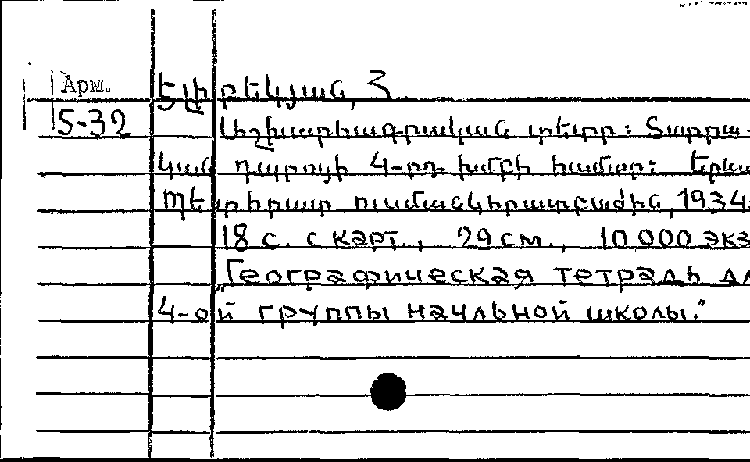 Арш.
5-32
Էլիբեկյան, Հ.
Աշխարհագրական տետր: Տարրա
կան դպրոցի 4-րդ խմբի համար: Երևան
Պետ
1934.
18 с. с карт., 29 см., 10 000 экз
"Географическая тетрадь дл
4-ой группы начльной школы."